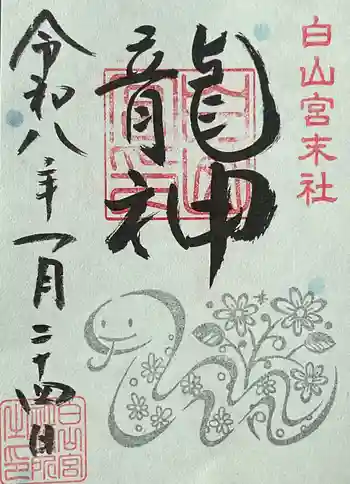 白山宮末社
龍神
令和八年一月二十四日